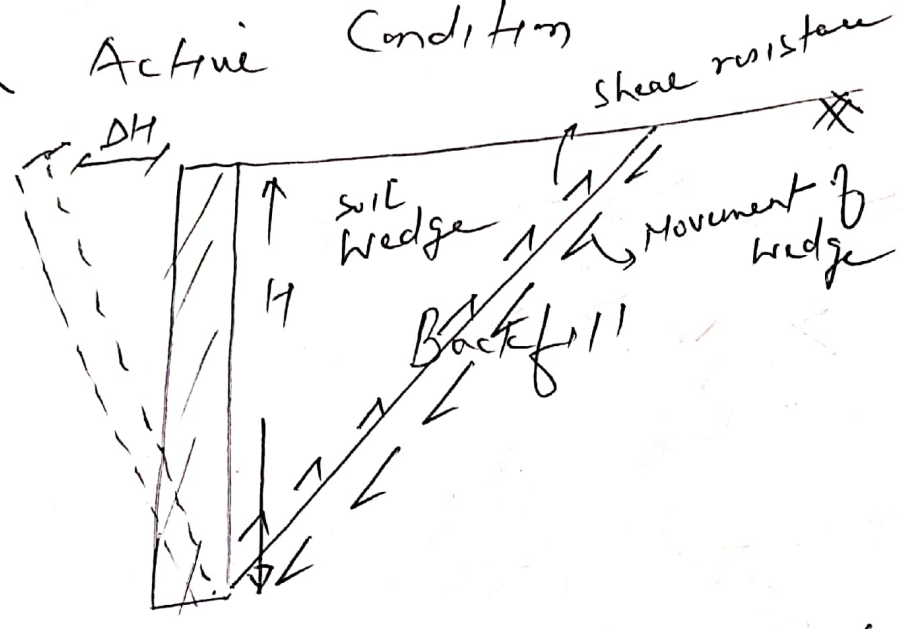 Active Condition
shear resistance
ΔH
soil
wedge
Movement of
wedge
H
Backfill